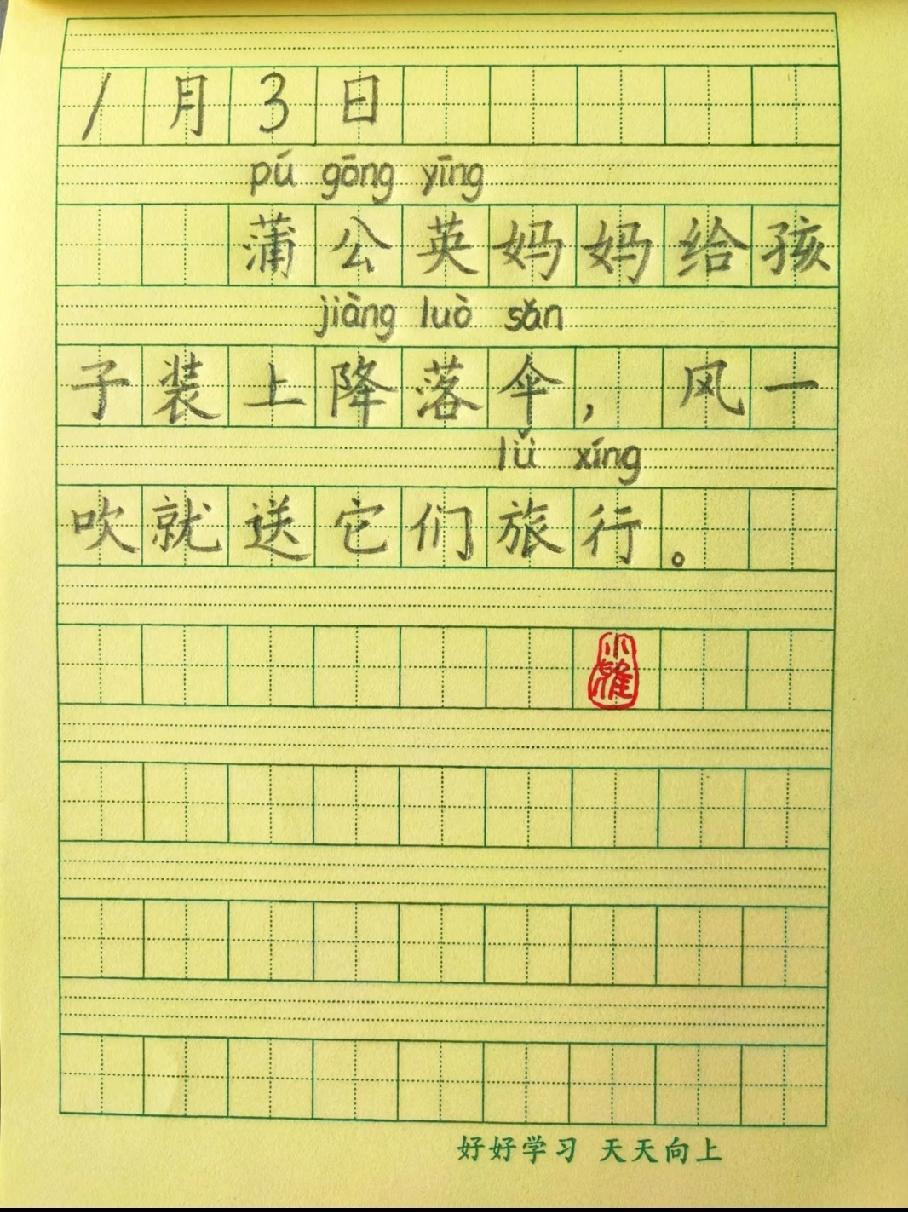 1月3日
pú gōng yīng
蒲公英妈妈给孩
jiàng luò sǎn
子装上降落伞，风一
lǚ xíng
吹就送它们旅行。
小雅
好好学习 天天向上